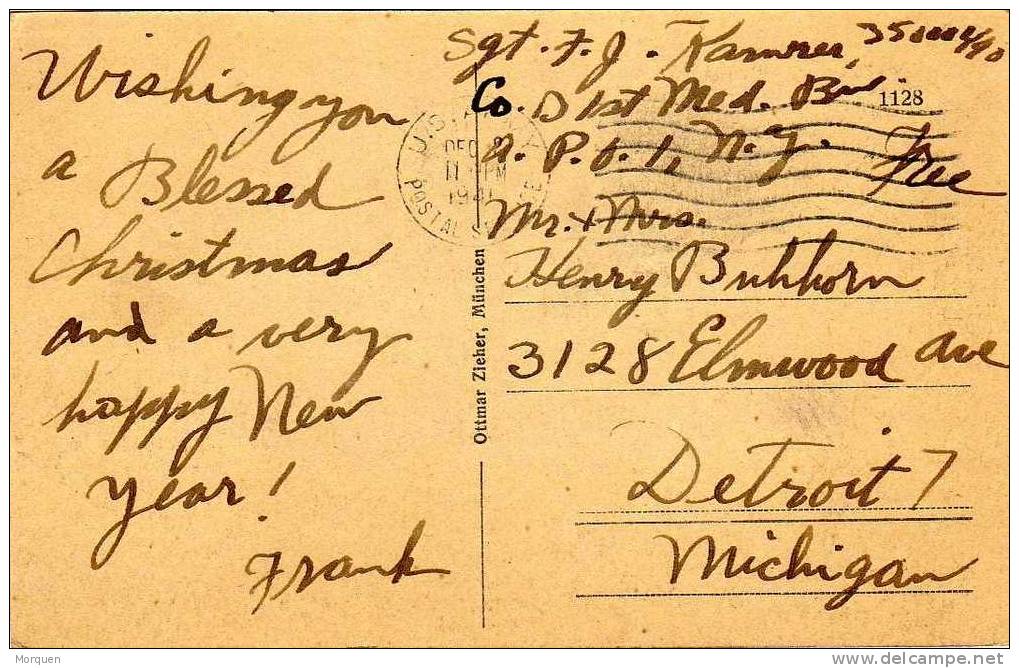 Wishing you
a Blessed
Christmas
and a very
happy New
Year!
Frank
Sgt. F. J.
Co. D 1st Med. Bn
A. P. O. 1, N. Y.
Free
1128
U.S.
DEC
PM
POSTAL
Mr. & Mrs.
Henry Buhhorn
3128 Elmwood Ave
Detroit 7
Michigan
Ottmar Zieher, München
Morquen
delcampe.net